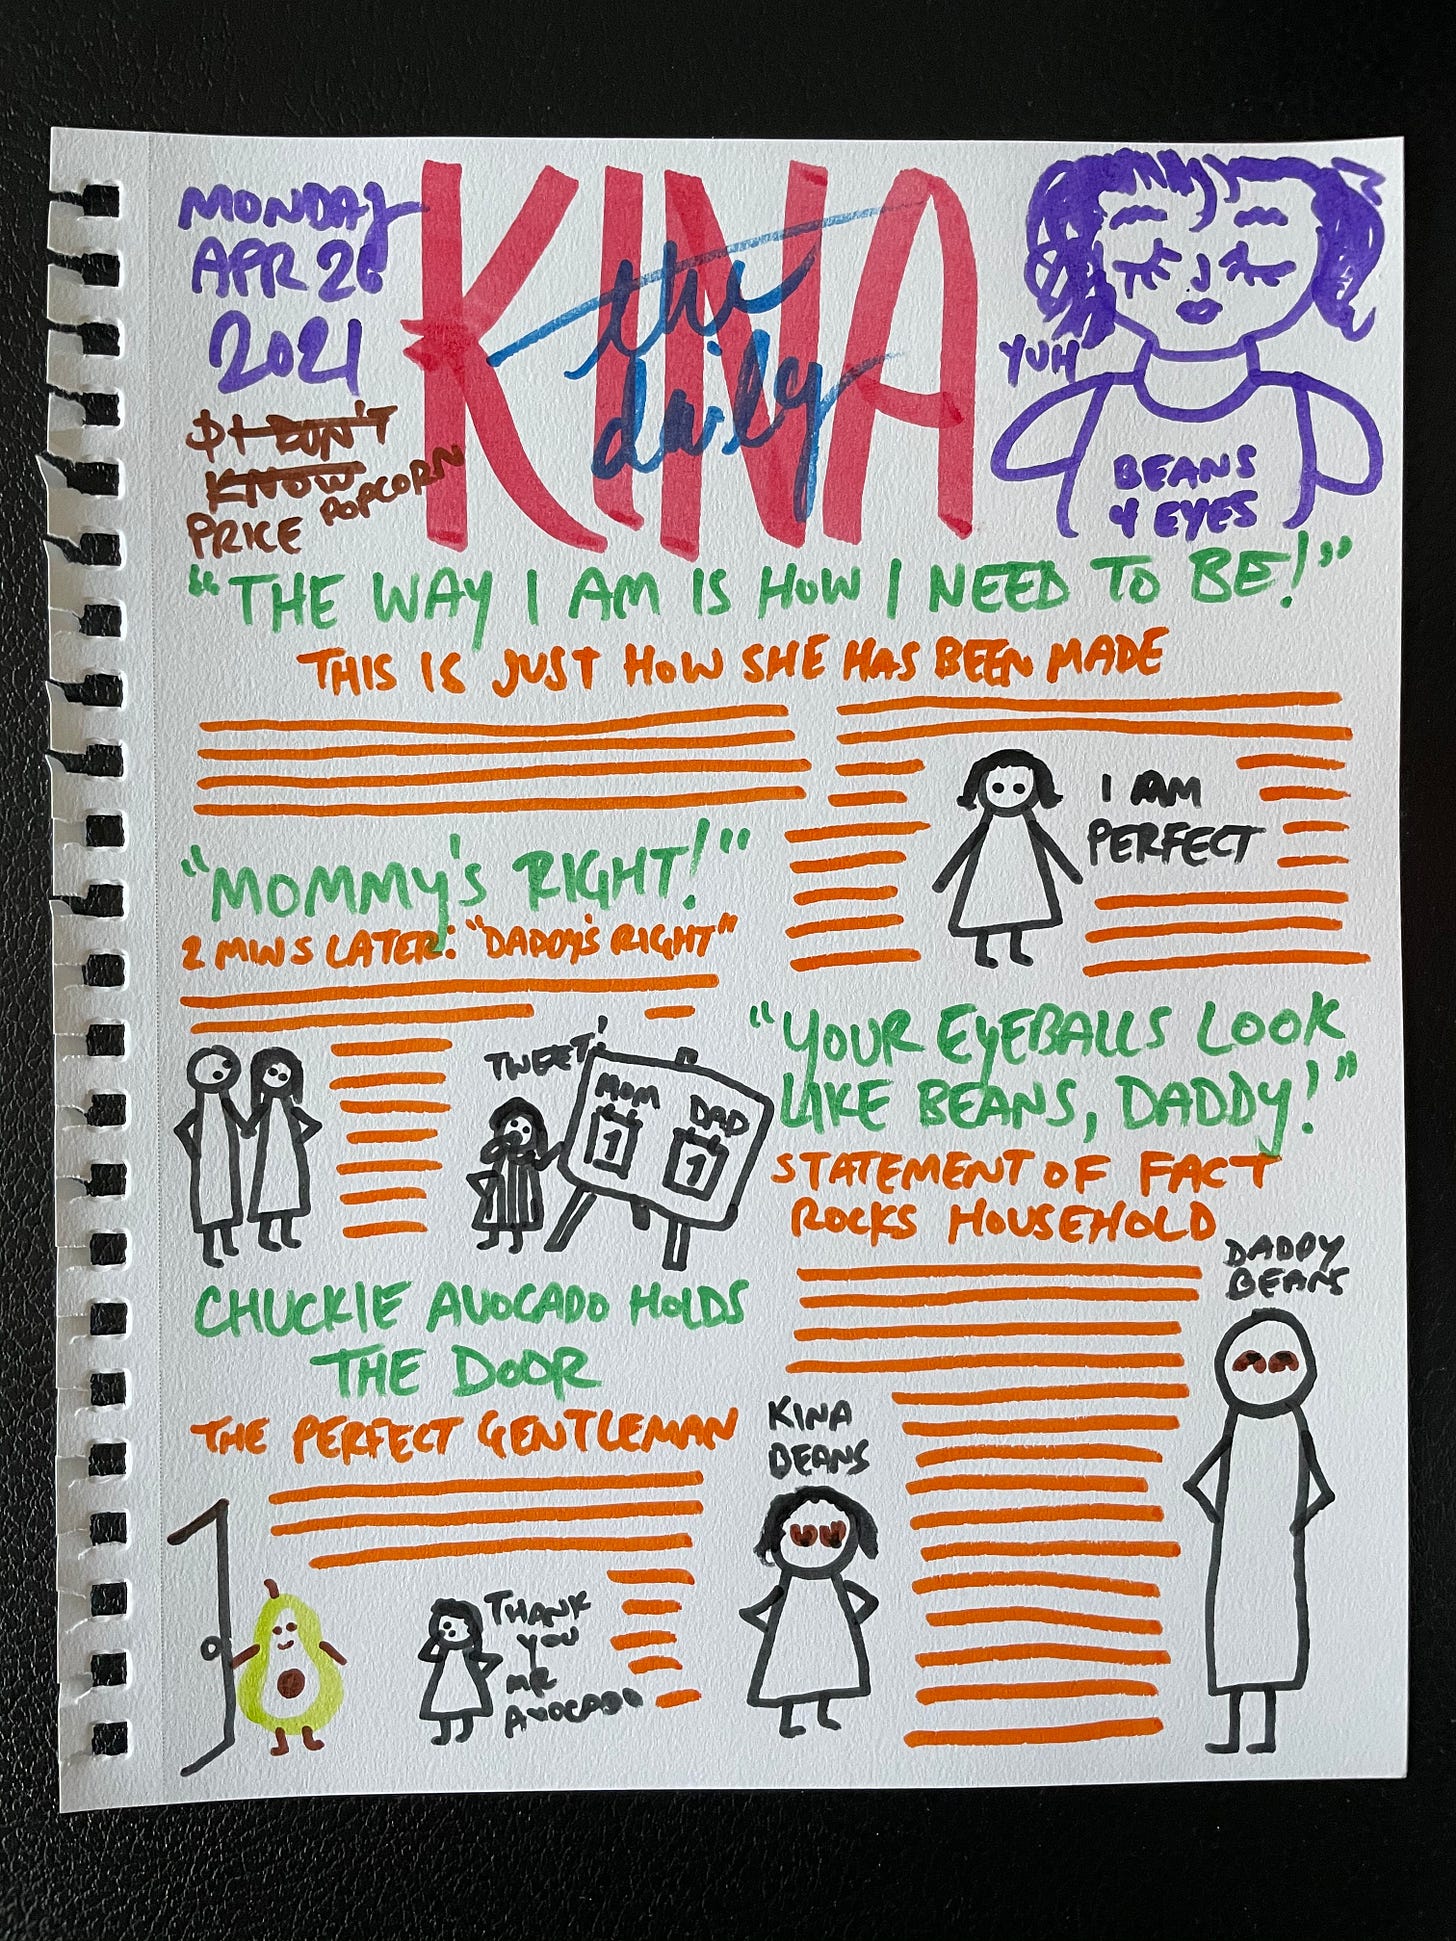 MONDAY
APR 26
2021
$1 DON'T
KNOW
POPCORN
PRICE
KINA
the
daily
YUH
BEANS
4 EYES
"THE WAY I AM IS HOW I NEED TO BE!"
THIS IS JUST HOW SHE HAS BEEN MADE
I AM
PERFECT
"MOMMY'S RIGHT!"
2 MINS LATER: "DADDY'S RIGHT"
TWEET!
MOM DAD
1 1
"YOUR EYEBALLS LOOK
LIKE BEANS, DADDY!"
STATEMENT OF FACT
ROCKS HOUSEHOLD
DADDY
BEANS
KINA
BEANS
CHUCKIE AVOCADO HOLDS
THE DOOR
THE PERFECT GENTLEMAN
THANK
YOU
MR
AVOCADO